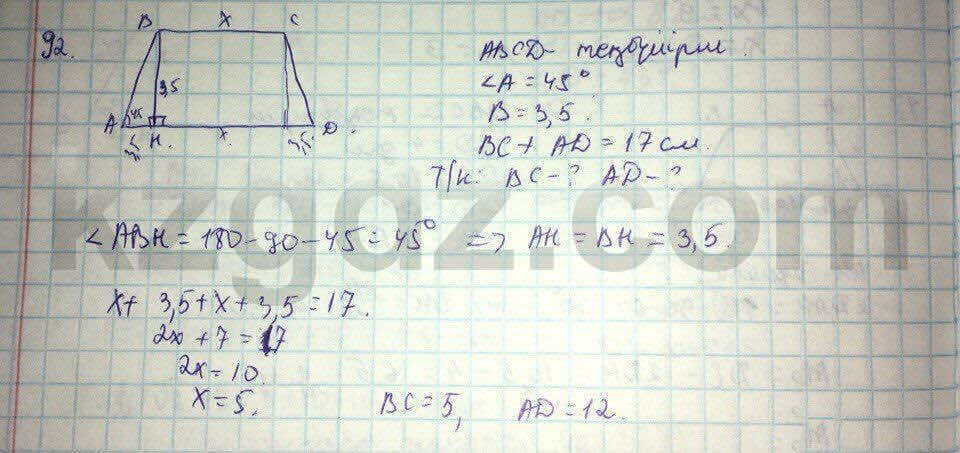 92.
B x C
3,5
A 45 H. x. D.
3,5 3,5
ABCD- теңбүйірлі.
∠A = 45°
B = 3,5.
BC + AD = 17 см.
Т/к: BC-? AD-?
kzgdz.com
∠ABH = 180-90-45 = 45° => AH = BH = 3,5.
x+ 3,5+x+3,5 = 17.
2x + 7 = 17
2x = 10.
x = 5.
BC = 5, AD = 12.